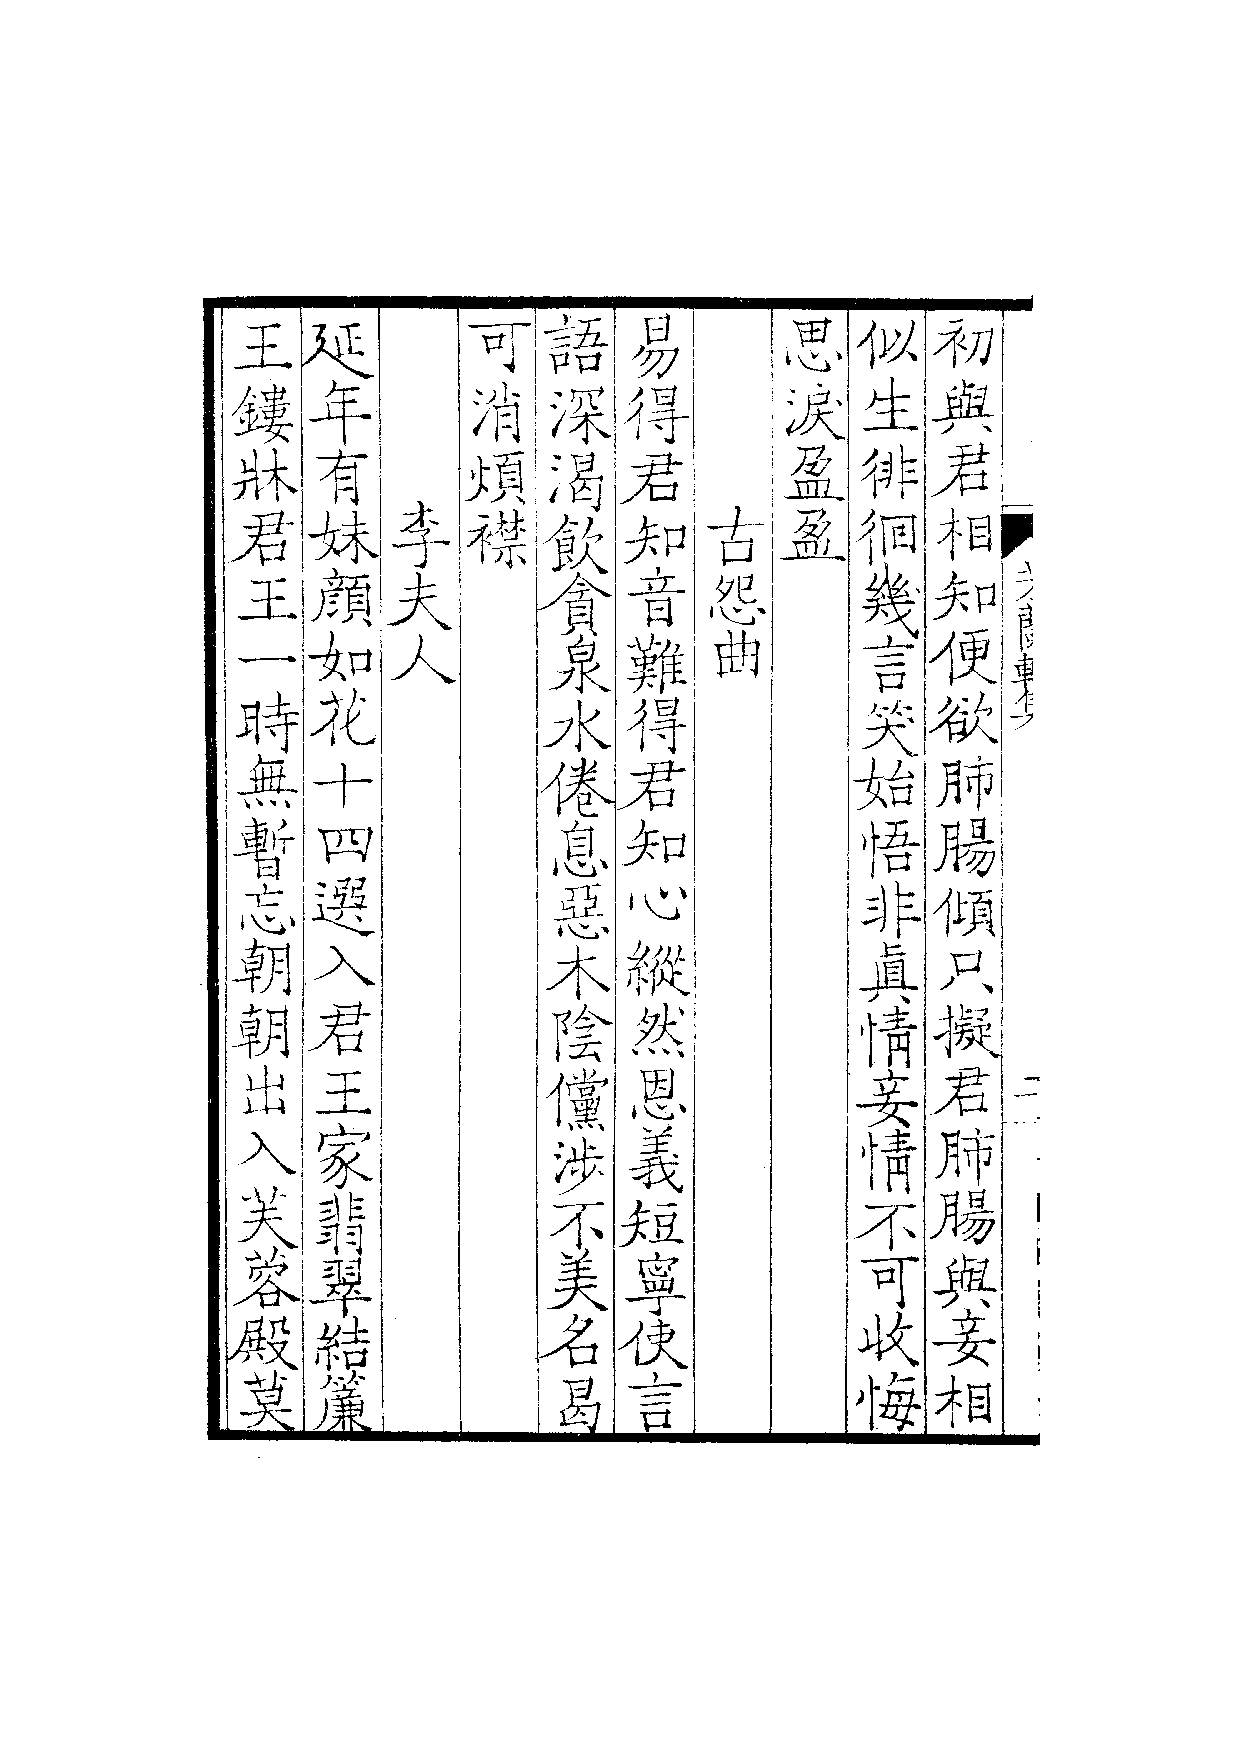 初與君相知便欲肺腸傾只擬君肺腸與妾相
似生徘徊幾言笑始悟非眞情妾情不可收悔
思淚盈盈
古怨曲
易得君知音難得君知心縱然恩義短寧使言
語深渴飲貪泉水倦息惡木陰儻涉不美名曷
可消煩襟
李夫人
延年有妹顔如花十四選入君王家翡翠結簾
王鏤牀君王一時無暫忘朝朝出入芙蓉殿莫
蘭軒集
二